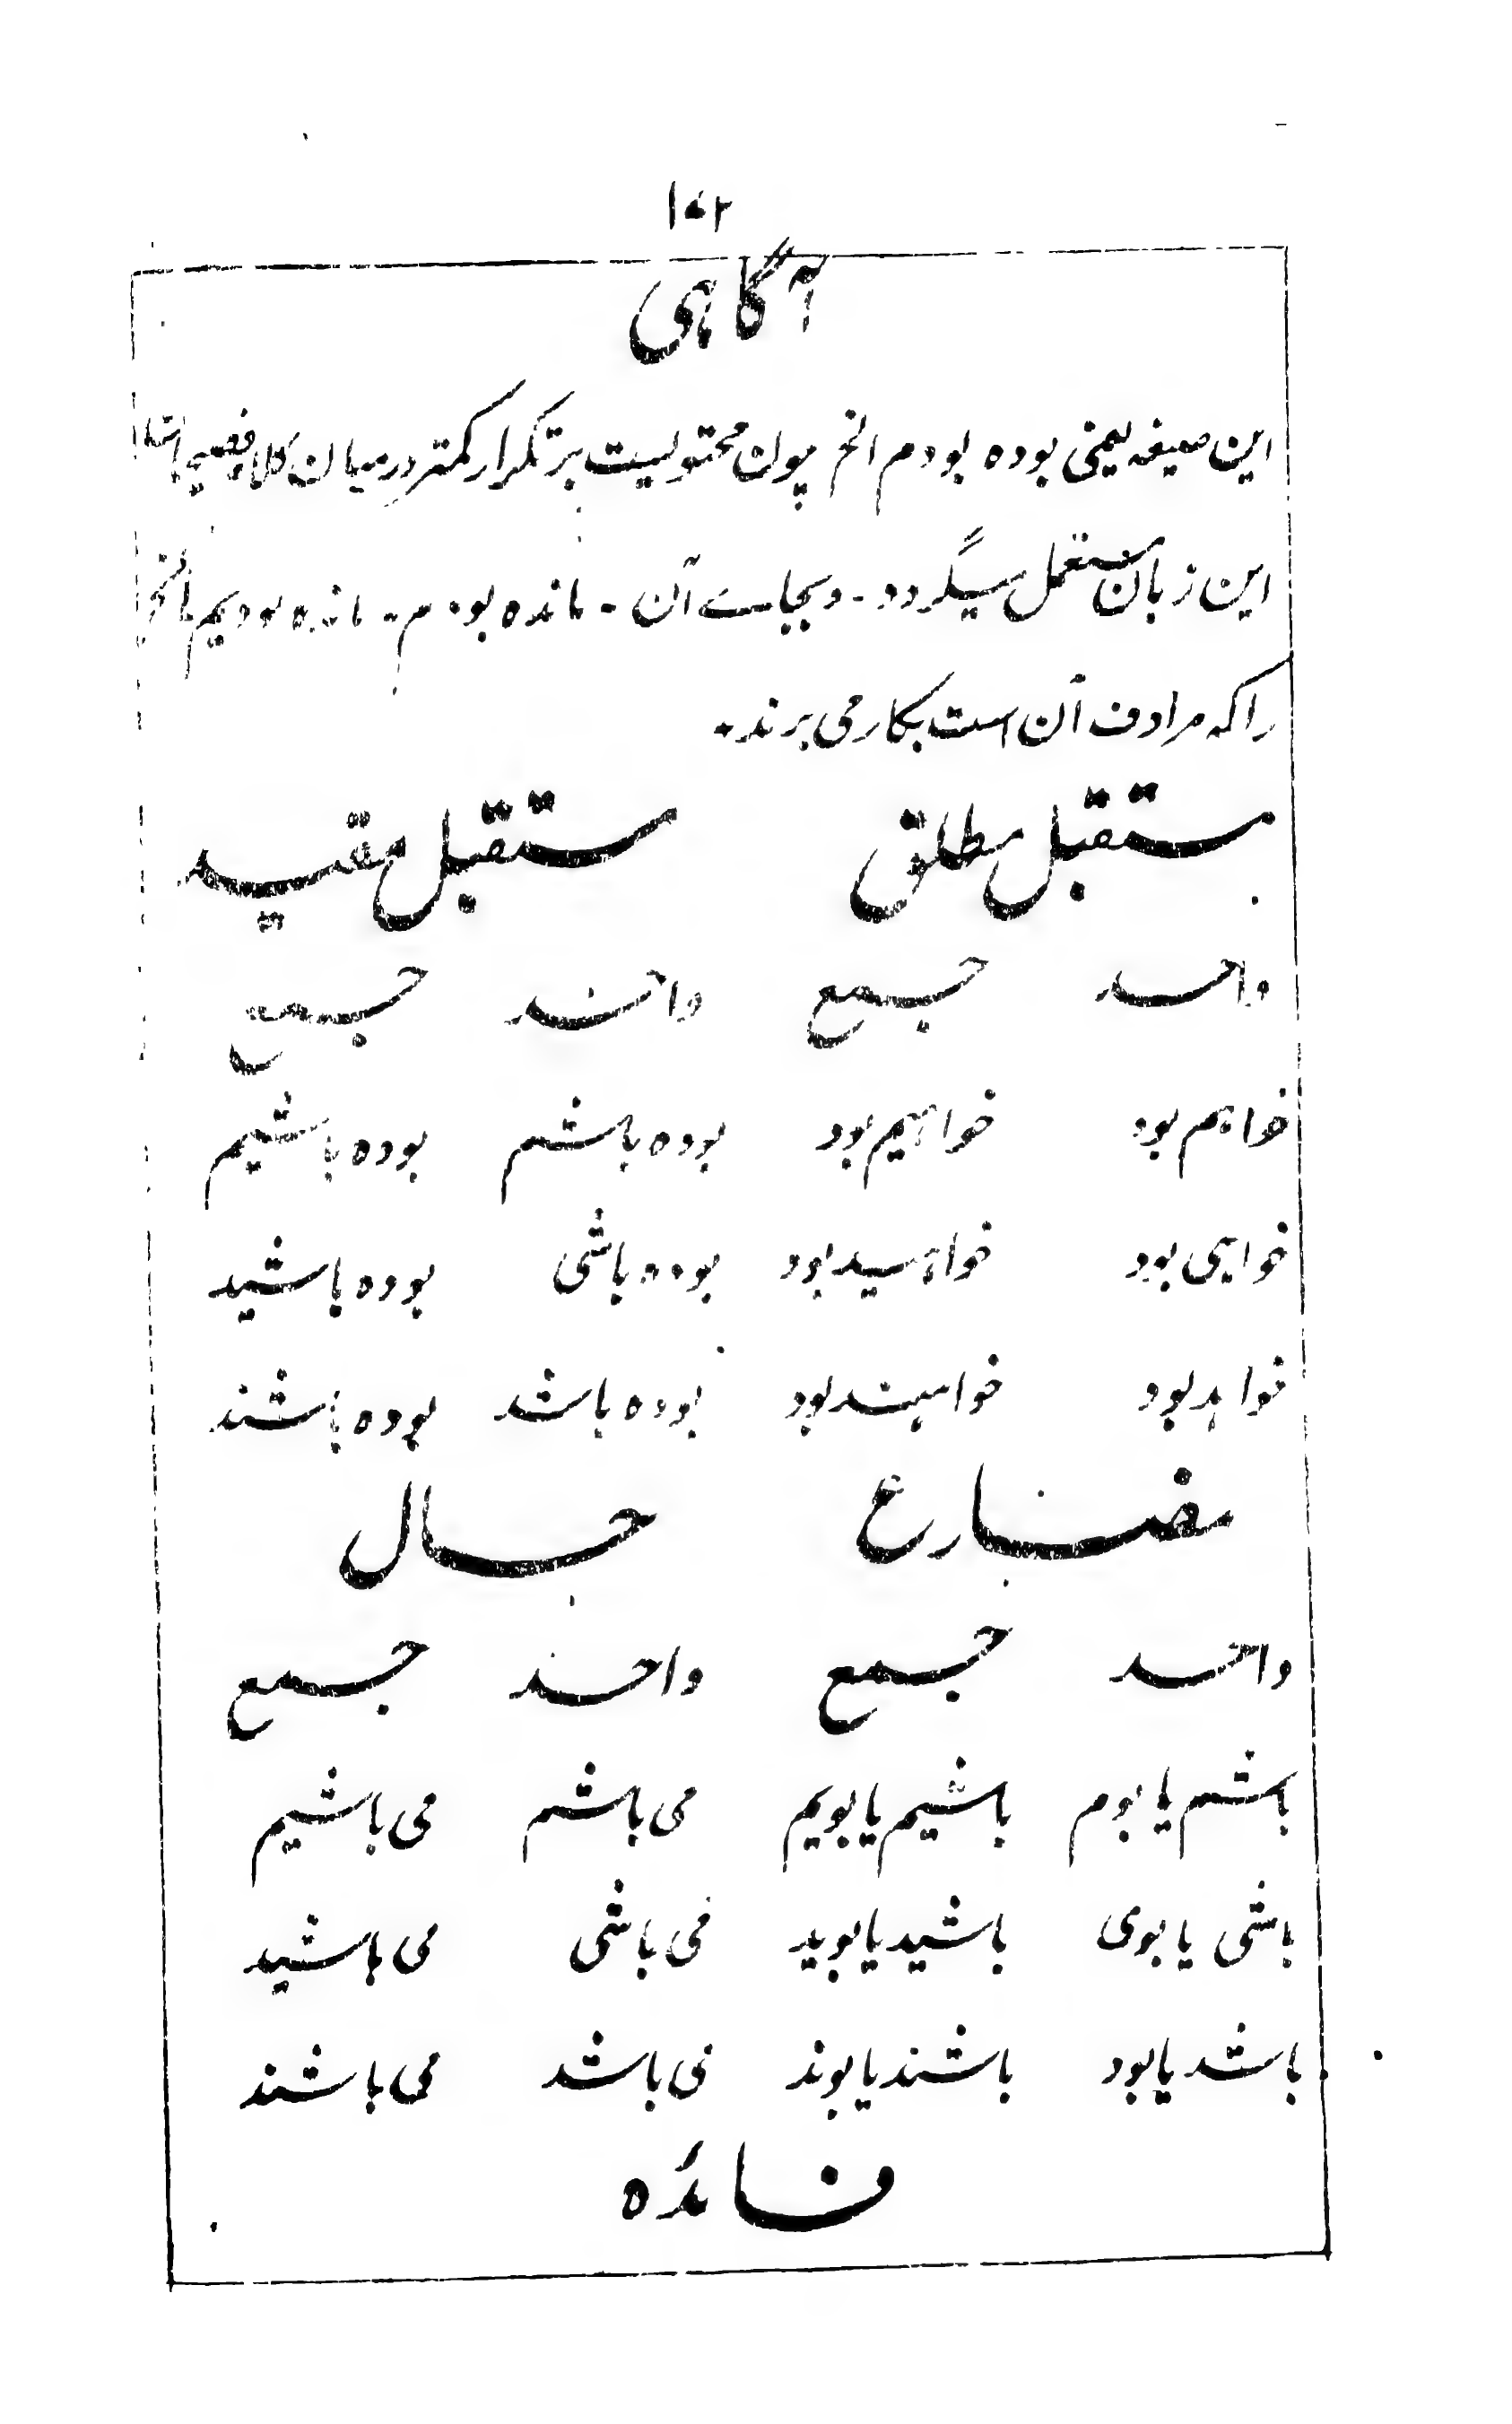 آگاهی
این صیغه یعنی بوده بودم الخ چون محتویست بر تکرار کمتر درمیان کلام فصیح
این زبان مستعمل میگردد - و بجاے آن - مانده بودم - مانده بودیم الخ
را که مرادف آن است بکار می برند -
مستقبل مطلق مستقبل مقید
واحد جمع واحد جمع
خواهم بود خواهیم بود بوده باشم بوده باشیم
خواهی بود خواهید بود بوده باشی بوده باشید
خواهد بود خواهند بود بوده باشد بوده باشند
مضارع حال
واحد جمع واحد جمع
باشم یا بوم باشیم یا بویم می باشم می باشیم
باشی یا بوی باشید یا بوید می باشی می باشید
باشد یا بود باشند یا بوند می باشد می باشند
فائده